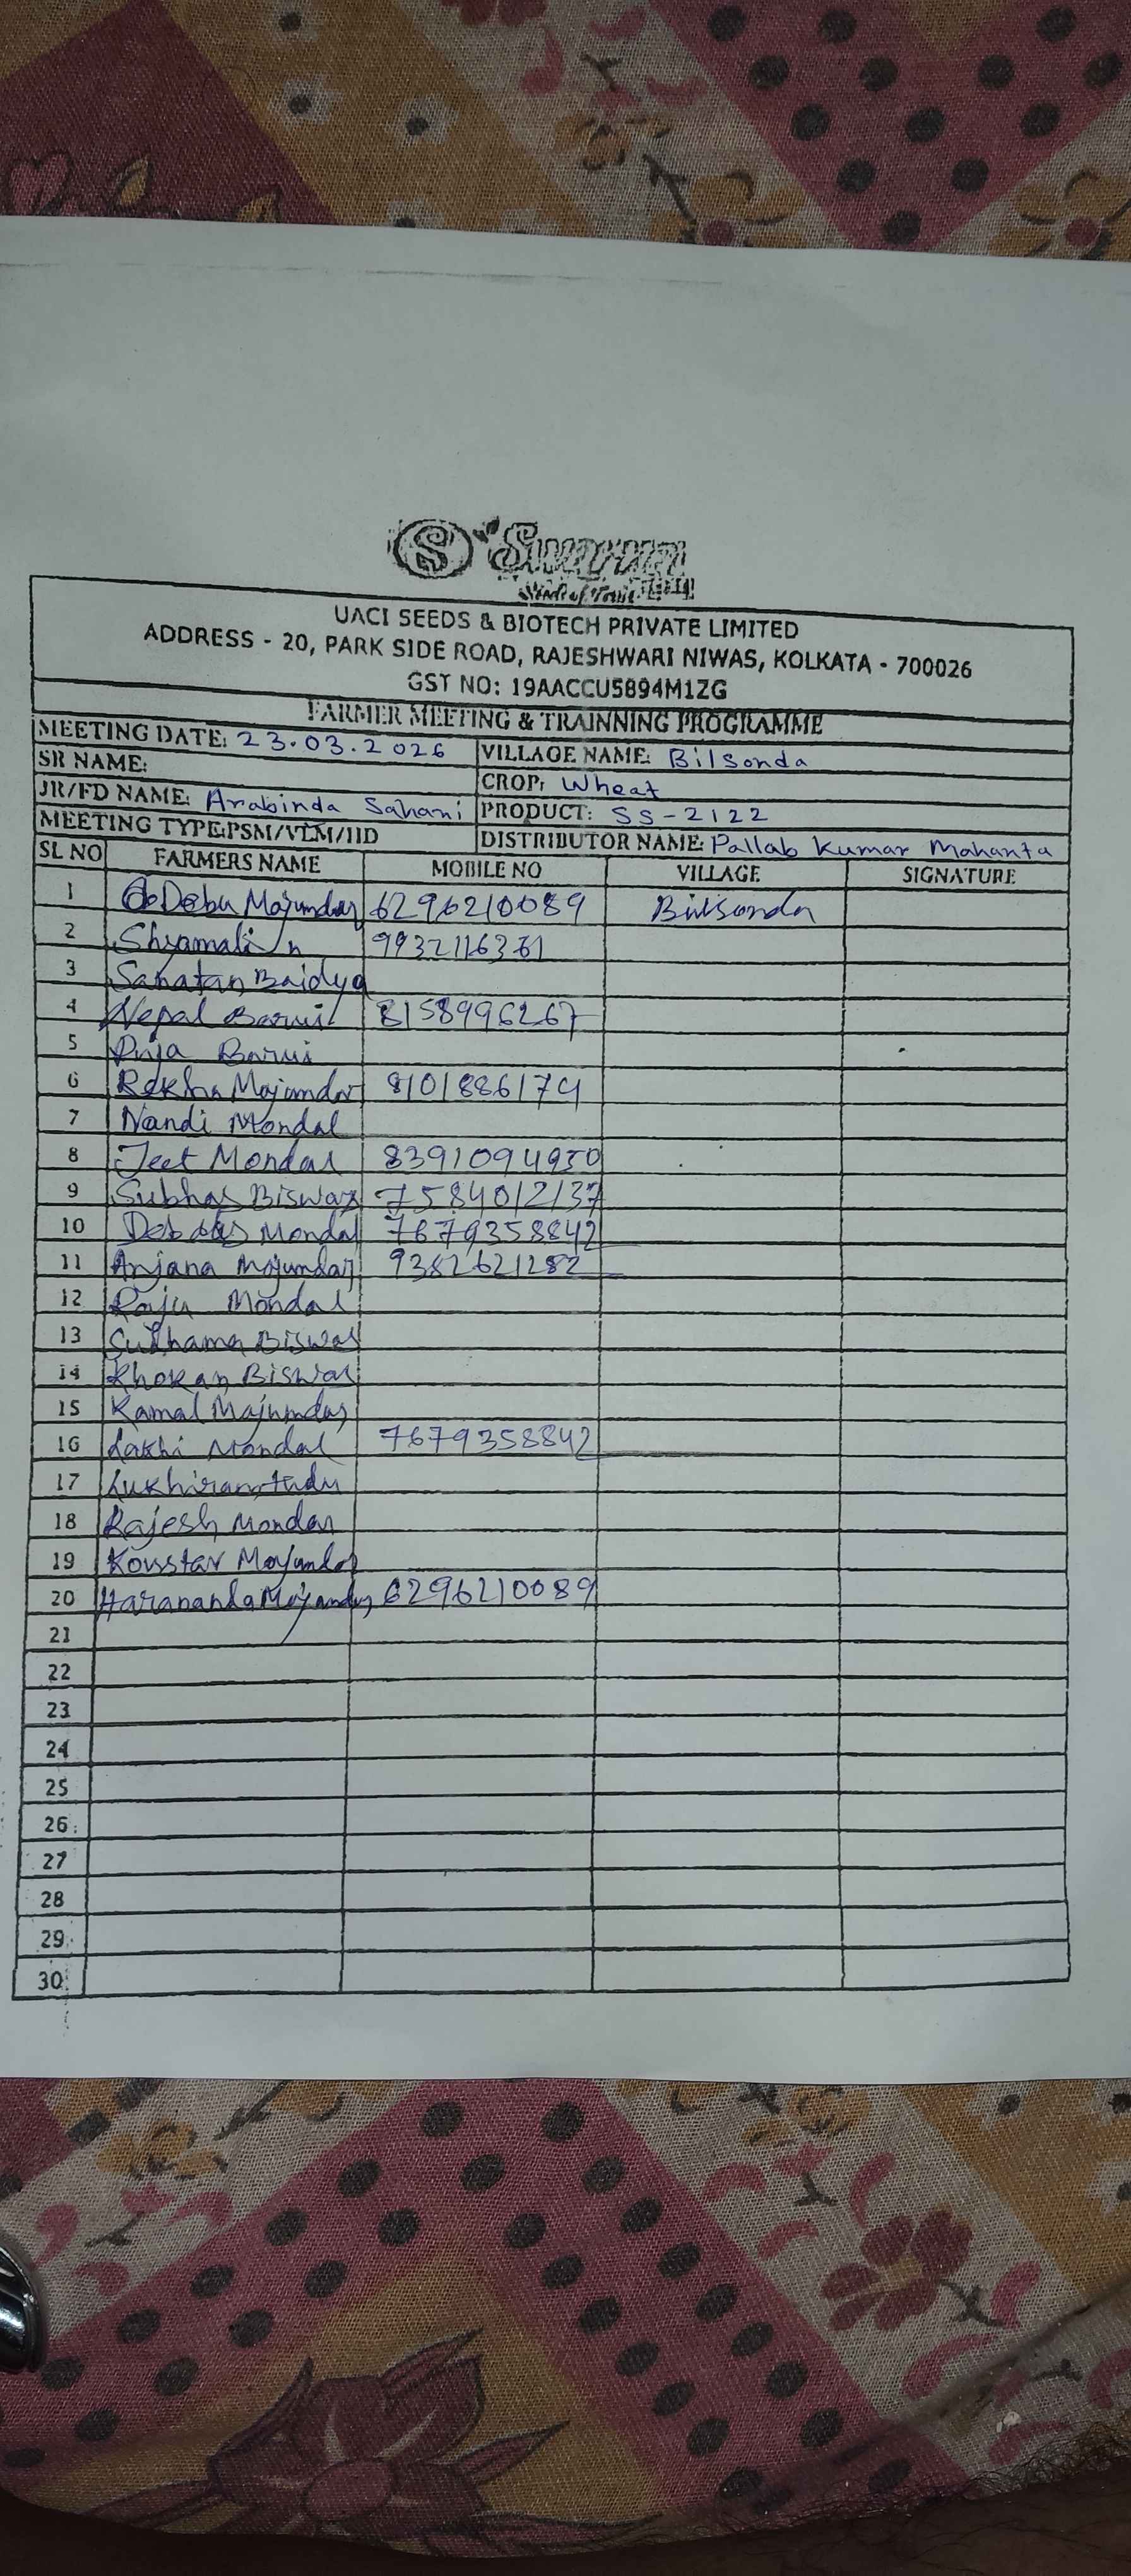 S Swarna
UACI SEEDS & BIOTECH PRIVATE LIMITED
ADDRESS - 20, PARK SIDE ROAD, RAJESHWARI NIWAS, KOLKATA - 700026
GST NO: 19AACCU5894M1ZG
FARMER MEETING & TRAINNING PROGRAMME
MEETING DATE: 23.03.2026 VILLAGE NAME: Bilsonda
SR NAME: CROP: Wheat
JR/FD NAME: Arabinda Sahani PRODUCT: SS-2122
MEETING TYPE:PSM/VLM/IID DISTRIBUTOR NAME: Pallab Kumar Mahanta
SL NO FARMERS NAME MOBILE NO VILLAGE SIGNATURE
1 Debu Majumdar 6296210089 Bilsonda
2 Shyamali
3 Sanatan Baidya
4 Nepal Barui 8158996267
5 Puja Barui
6 Rekha Majumdar 8101886174
7 Nandi Mondal
8 Jeet Mondal 8391094950
9 Subhas Biswas 7584012137
10 Debdas Mondal 7679358842
11 Anjana Majumdar 9382621282
12 Raju Mondal
13 Biswas
14 Khokan Biswas
15 Kamal Majumdar
16 Lakhi Mondal 7679358842
17 Lukhiram tudu
18 Rajesh Mondal
19 Koustav Majumdar
20 Harananda Majumdar 6296210089
21
22
23
24
25
26
27
28
29
30